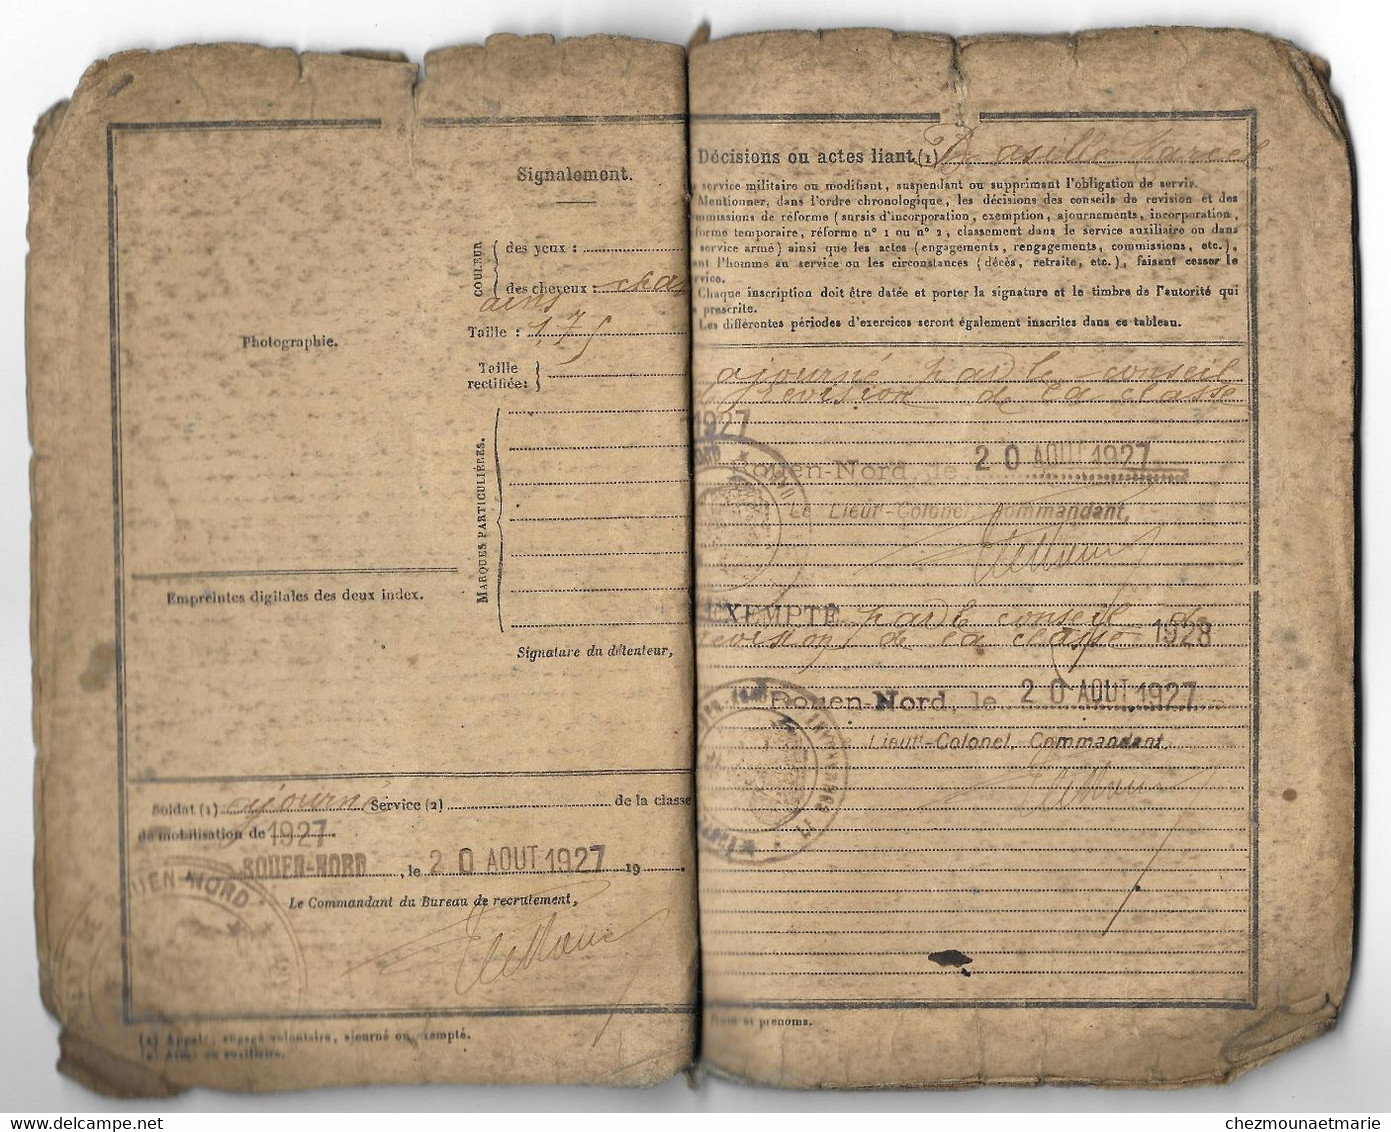 Signalement.
COULEUR
des yeux :
des cheveux : chat
ains
Taille : 1,75
Taille
rectifiée :
MARQUES PARTICULIÈRES.
Photographie.
Empreintes digitales des deux index.
Signature du détenteur,
Soldat (1) ajourné Service (2) de la classe
de mobilisation de 1927.
ROUEN-NORD, le 20 AOUT 1927 19 .
Le Commandant du Bureau de recrutement,
(1) Appelé, engagé volontaire, ajourné ou exempté.
(2) Armé ou auxiliaire.
Décisions ou actes liant (1) Marcel
service militaire ou modifiant, suspendant ou supprimant l'obligation de servir.
Mentionner, dans l'ordre chronologique, les décisions des conseils de revision et des
mmissions de réforme (sursis d'incorporation, exemption, ajournements, incorporation,
forme temporaire, réforme n° 1 ou n° 2, classement dans le service auxiliaire ou dans
service armé) ainsi que les actes (engagements, rengagements, commissions, etc.),
ant l'homme au service ou les circonstances (décès, retraite, etc.), faisant cesser le
rvice.
Chaque inscription doit être datée et porter la signature et le timbre de l'autorité qui
prescrite.
Les différentes périodes d'exercices seront également inscrites dans ce tableau.
ajourné par le conseil
de revision de la classe
1927
Rouen-Nord, le 20 AOUT 1927
Le Lieut-Colonel, Commandant,
EXEMPTÉ par le conseil de
revision de la classe 1928
Rouen-Nord, le 20 AOUT 1927
Lieut-Colonel, Commandant
Nom et prénoms.
ROUEN-NORD
www.delcampe.net
chezmounaetmarie